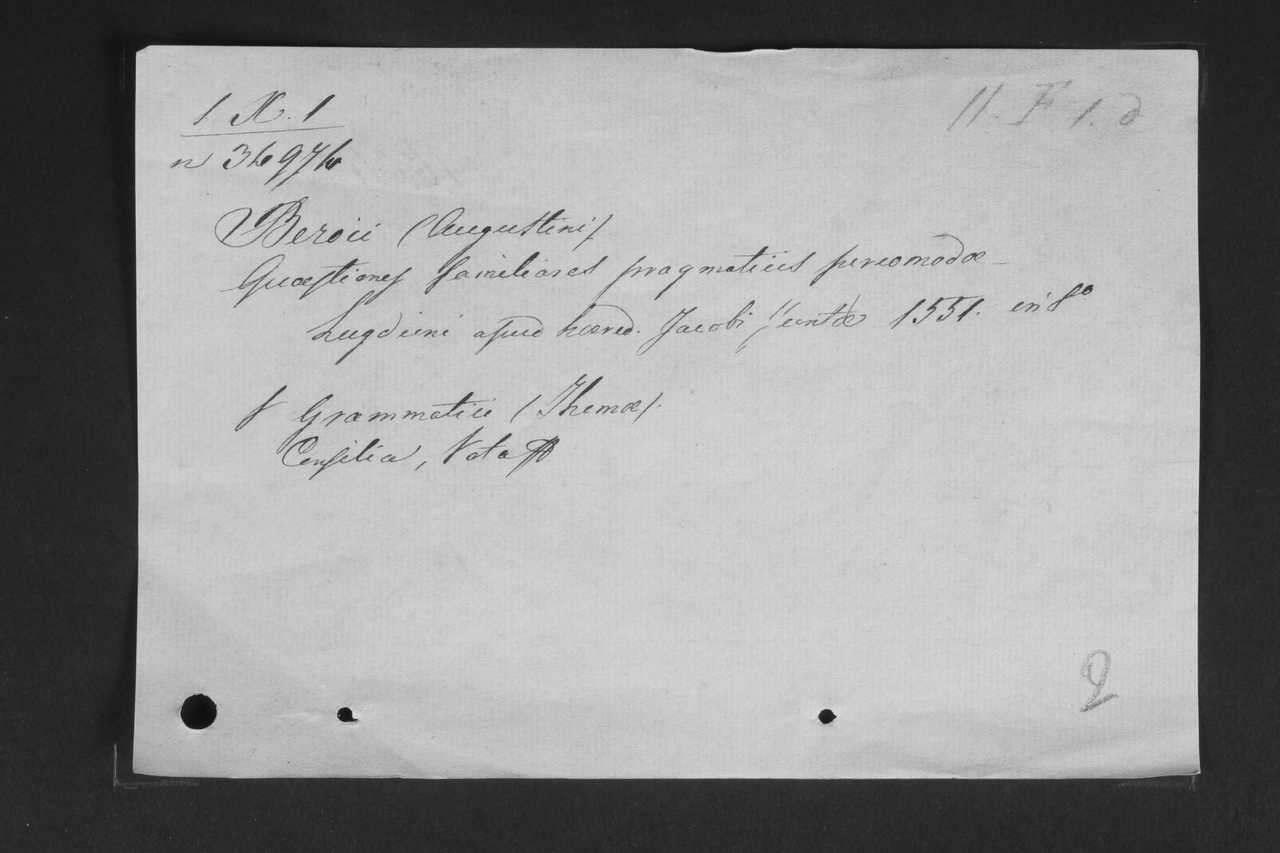 1. X. 1
11. F 1. d
n 36976
Beroii (Augustini)
Quæstiones familiares pragmaticis percomodæ
Lugduni apud hæred. Jacobi Juntæ 1551. in f°
f Grammatici (Thomæ).
Consilia, Vota
2